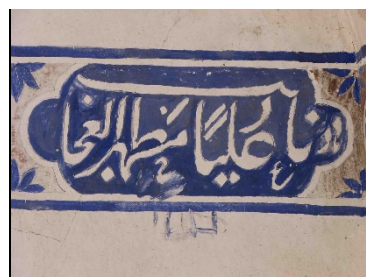 ناد عليًا مظهر العجائب